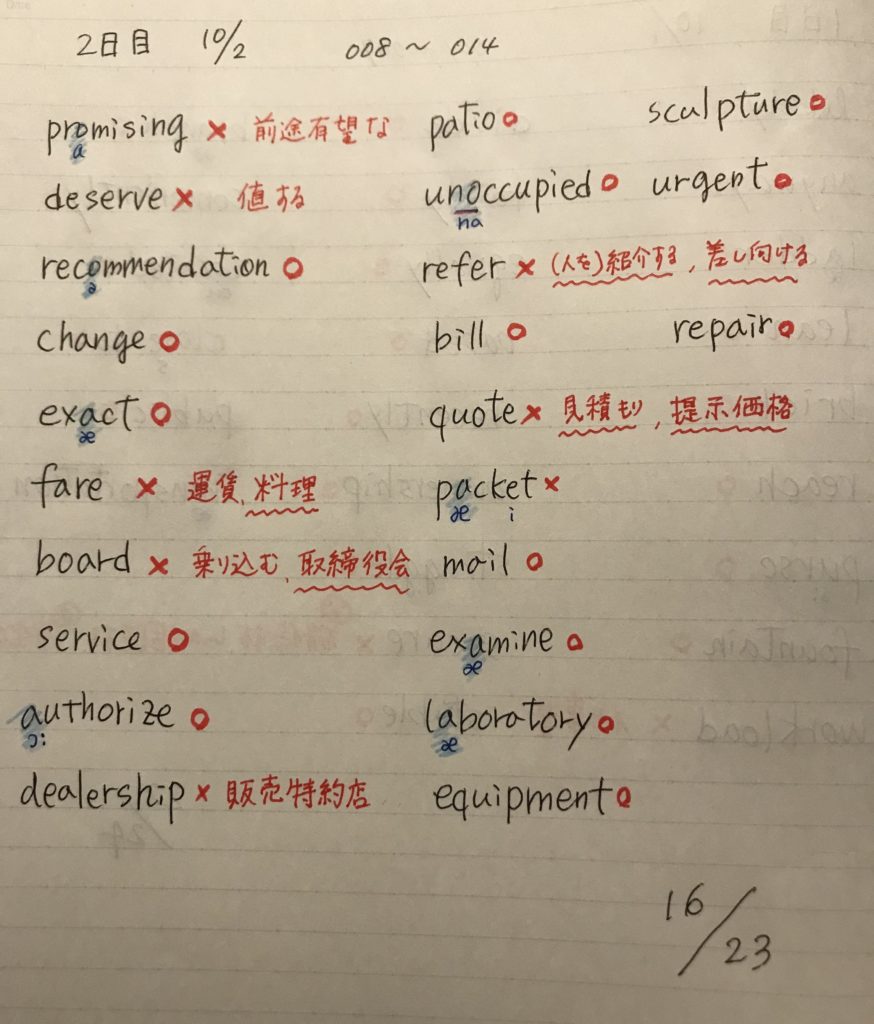 2日目 10/2 008～014
promising × 前途有望な
a
deserve × 値する
recommendation ○
ə
change ○
exact ○
æ
fare × 運賃、料理
board × 乗り込む、取締役会
service ○
authorize ○
ɔː
dealership × 販売特約店
patio ○
unoccupied ○
na
refer × (人を)紹介する, 差し向ける
bill ○
quote × 見積もり, 提示価格
packet ×
æ i
mail ○
examine ○
æ
laboratory ○
æ
equipment ○
sculpture ○
urgent ○
repair ○
16/23